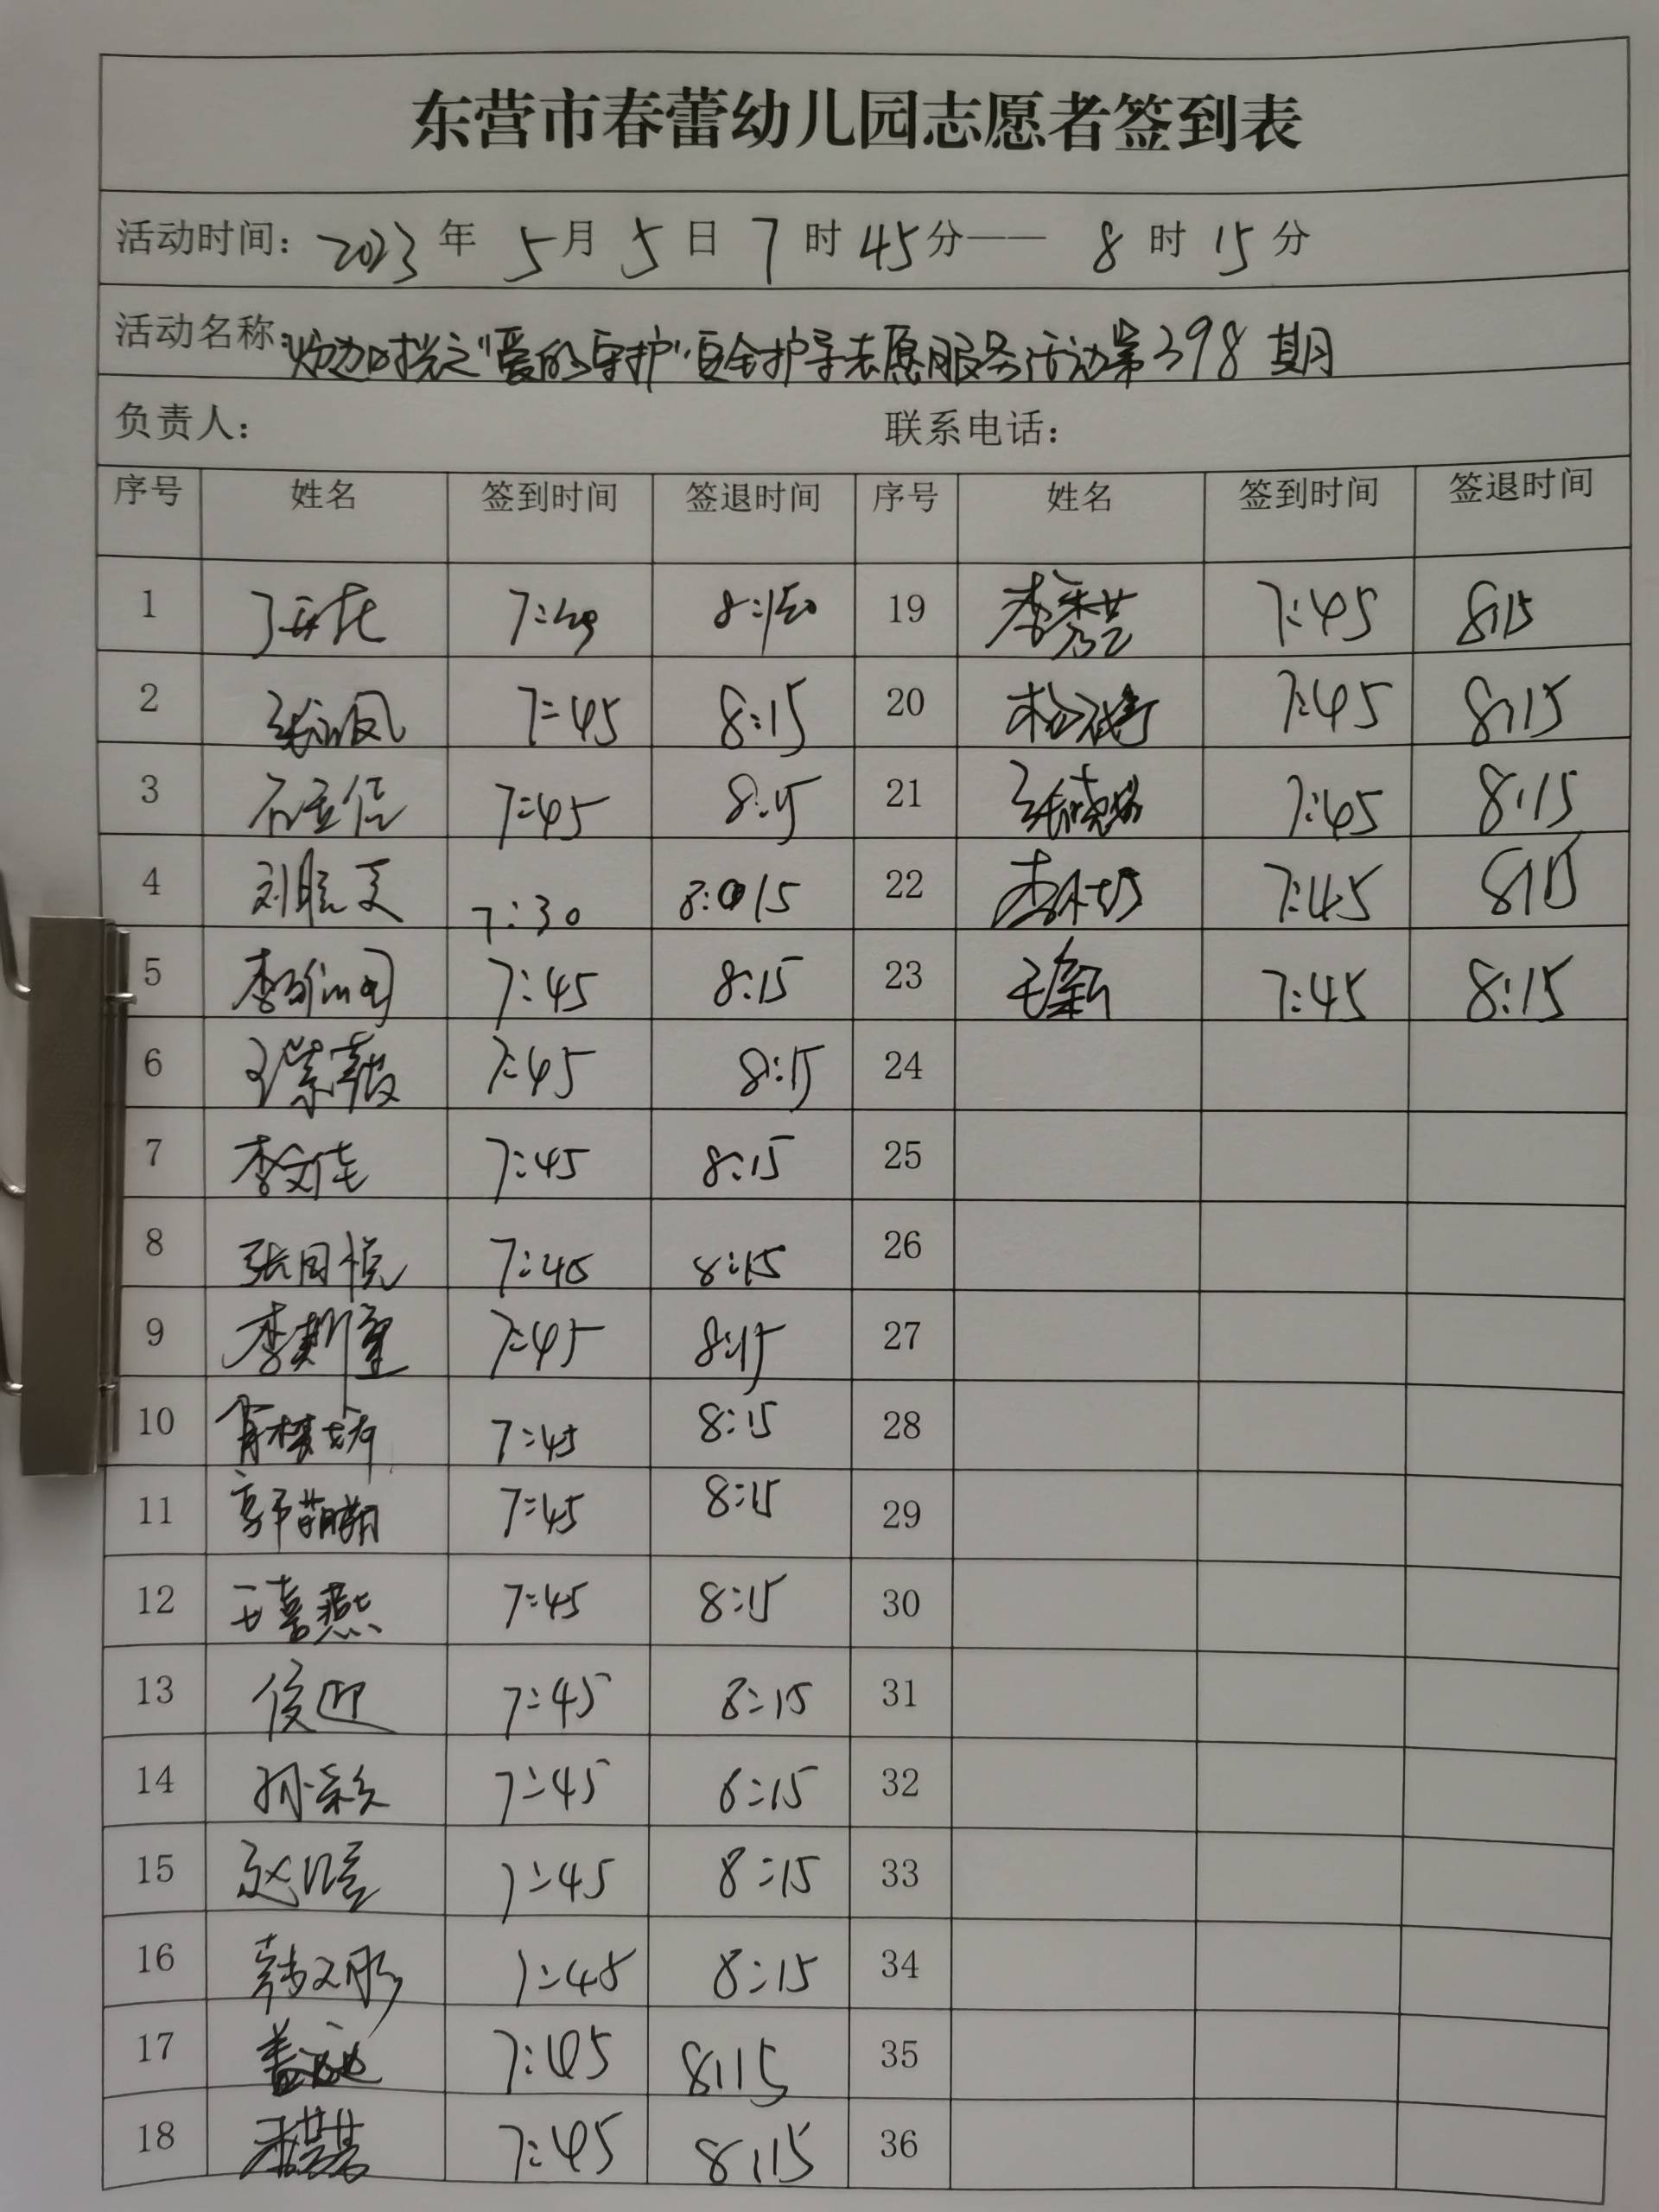 东营市春蕾幼儿园志愿者签到表
活动时间: 2023 年 5 月 5 日 7 时 45 分—— 8 时 15 分
活动名称: 时光之"爱的守护"安全护导志愿服务活动第398期
负责人: 联系电话:
序号 姓名 签到时间 签退时间 序号 姓名 签到时间 签退时间
1 7: 8: 19 李秀芸 7:45 8:15
2 7:45 8:15 20 7:45 8:15
3 7:45 8:15 21 7:45 8:15
4 7:30 8:15 22 7:45 8:15
5 7:45 8:15 23 7:45 8:15
6 王紫薇 7:45 8:15 24
7 李文佳 7:45 8:15 25
8 张月悦 7:45 8:15 26
9 7:45 8:15 27
10 7:45 8:15 28
11 郭萌萌 7:45 8:15 29
12 王喜燕 7:45 8:15 30
13 7:45 8:15 31
14 孙 7:45 8:15 32
15 赵 7:45 8:15 33
16 韩文彤 7:45 8:15 34
17 7:45 8:15 35
18 7:45 8:15 36